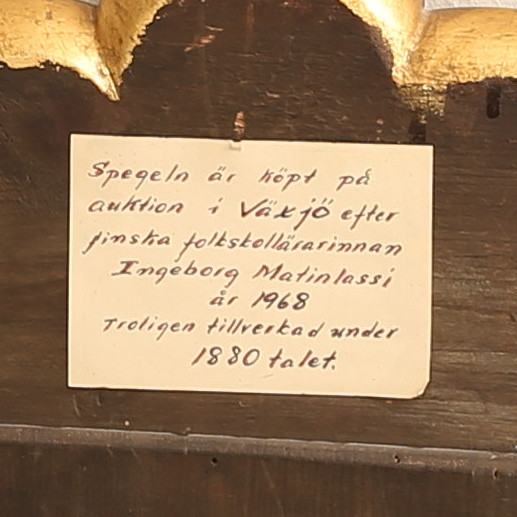 Spegeln är köpt på
auktion i Växjö efter
finska folkskollärarinnan
Ingeborg Matinlassi
år 1968
Troligen tillverkad under
1880 talet.